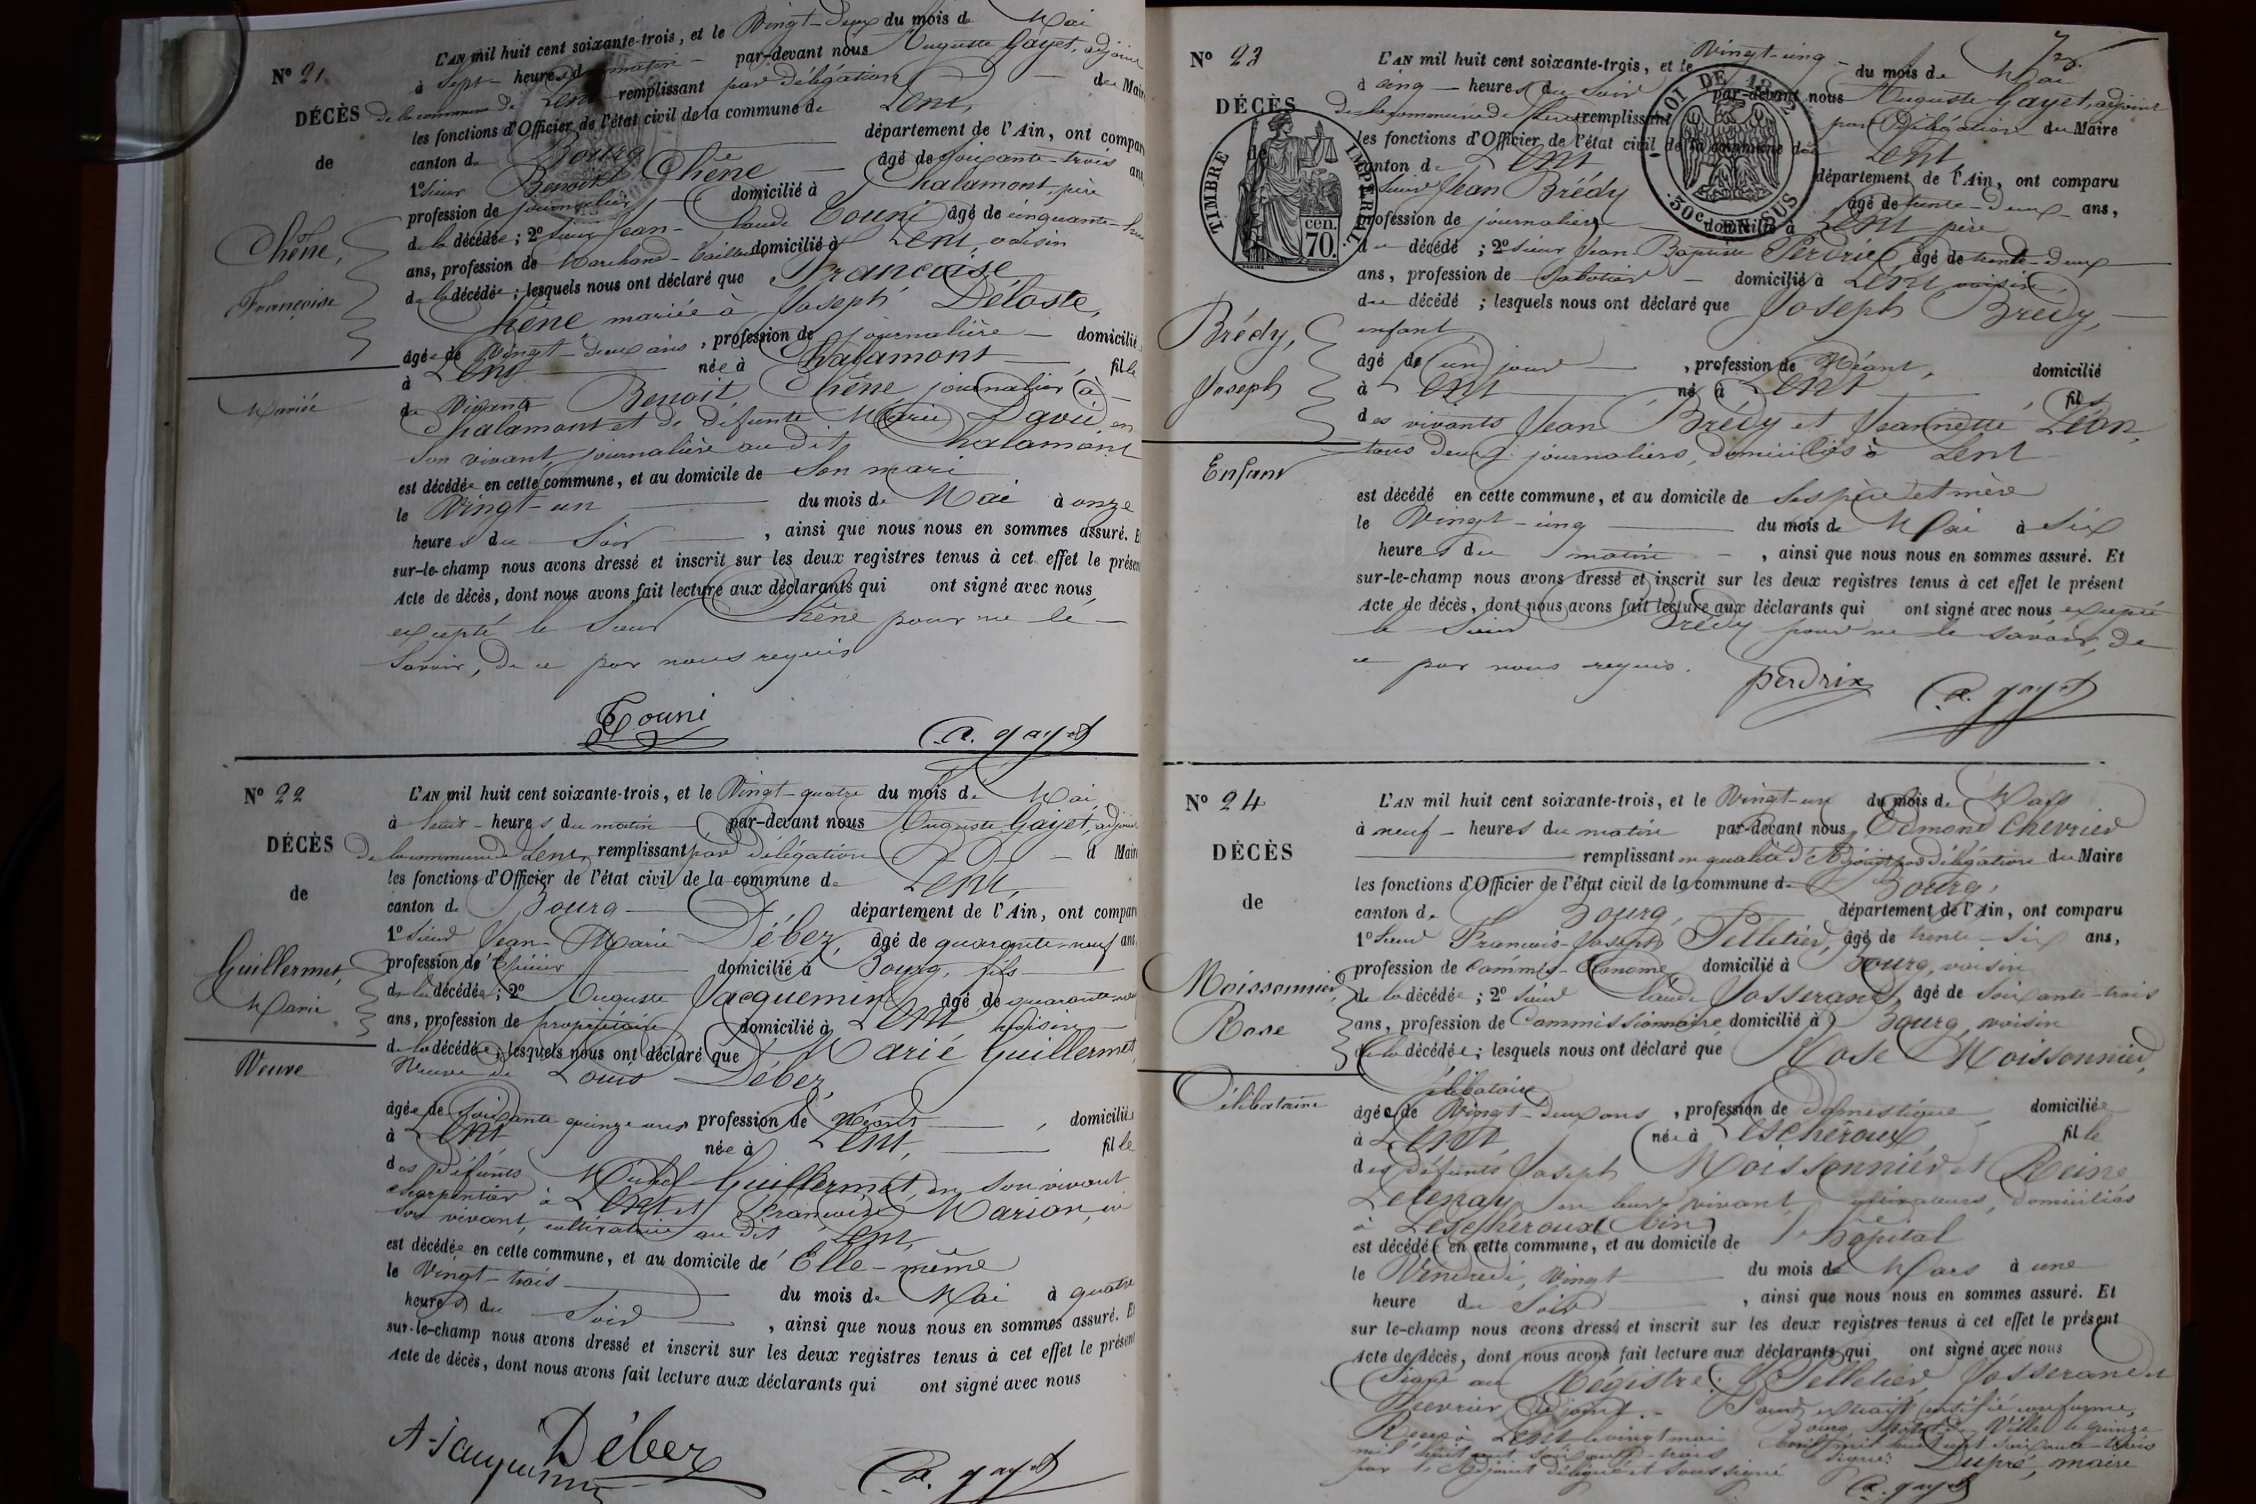 N° 21.
DÉCÈS
de
Chêne,
Françoise
Mariée
L'AN mil huit cent soixante-trois, et le Vingt-deux du mois de Mai
à Sept heures du matin par-devant nous Auguste Gayet, adjoint
de la commune de Lent remplissant par délégation du Maire
les fonctions d'Officier de l'état civil de la commune de Lent,
canton de Bourg département de l'Ain, ont comparu
1° Sieur Benoit Chêne âgé de soixante-trois ans,
profession de journalier domicilié à Chalamont, père
de la décédée; 2° Sieur Jean-Claude Touni âgé de cinquante-
ans, profession de Marchand-Tailleur domicilié à Lent, voisin
de la décédée; lesquels nous ont déclaré que Françoise
Chêne mariée à Joseph Déloste,
âgée de Vingt-deux ans, profession de journalière domiciliée
à Lent née à Chalamont, fille
de Vivant Benoit Chêne journalier à
Chalamont et de défunte Marie David, en
son vivant, journalière au dit Chalamont
est décédée en cette commune, et au domicile de son mari
le Vingt-un du mois de Mai à onze
heures du Soir, ainsi que nous nous en sommes assuré. Et
sur-le-champ nous avons dressé et inscrit sur les deux registres tenus à cet effet le présent
Acte de décès, dont nous avons fait lecture aux déclarants qui ont signé avec nous
excepté le Sieur Chêne pour ne le
savoir, de ce par nous requis
Touni A. gayet
N° 22
DÉCÈS
de
Guillermet,
Marie
Veuve
L'AN mil huit cent soixante-trois, et le Vingt-quatre du mois de Mai,
à huit heures du matin par-devant nous Auguste Gayet, adjoint
de la commune de Lent, remplissant par délégation d Maire
les fonctions d'Officier de l'état civil de la commune de Lent,
canton de Bourg département de l'Ain, ont comparu
1° Sieur Jean-Marie Déber, âgé de quarante-neuf ans,
profession d'Epicier domicilié à Bourg, fils
de la décédée; 2° Auguste Jacquemin âgé de quarante-
ans, profession de propriétaire domicilié à Lent voisin
de la décédée; lesquels nous ont déclaré que Marie Guillermet,
Veuve de Louis Déber,
âgée de soixante quinze ans, profession de Néant, domiciliée
à Lent née à Lent, fille
des défunts Michel Guillermet, en son vivant
charpentier à Lent et Françoise Marion, en
son vivant, cultivatrice au dit Lent,
est décédée en cette commune, et au domicile de Elle-même
le Vingt-trois du mois de Mai à quatre
heures du Soir, ainsi que nous nous en sommes assuré. Et
sur-le-champ nous avons dressé et inscrit sur les deux registres tenus à cet effet le présent
Acte de décès, dont nous avons fait lecture aux déclarants qui ont signé avec nous
A. Jacquemin Déber A. gayet
N° 23
DÉCÈS
de
Brédy,
Joseph
Enfant
TIMBRE IMPÉRIAL
70 cen.
LOI DE 1862
50c. EN SUS
L'AN mil huit cent soixante-trois, et le Vingt-cinq du mois de Mai
à cinq heures du Soir par-devant nous Auguste Gayet, adjoint
de la commune de Lent remplissant par délégation du Maire
les fonctions d'Officier de l'état civil de la commune de Lent
canton de Lent département de l'Ain, ont comparu
1° Sieur Jean Brédy âgé de trente-deux ans,
profession de journalier domicilié à Lent père
du décédé; 2° Sieur Jean-Baptiste Perdrix âgé de trente-deux
ans, profession de Sabotier domicilié à Lent, voisin
du décédé; lesquels nous ont déclaré que Joseph Brédy,
enfant
âgé de un jour, profession de Néant, domicilié
à Lent né à Lent, fils
des vivants Jean Brédy et Jeannette Léon,
tous deux journaliers, domiciliés à Lent
est décédé en cette commune, et au domicile de Ses père et mère
le Vingt-cinq du mois de Mai à Six
heures du matin, ainsi que nous nous en sommes assuré. Et
sur-le-champ nous avons dressé et inscrit sur les deux registres tenus à cet effet le présent
Acte de décès, dont nous avons fait lecture aux déclarants qui ont signé avec nous excepté
le Sieur Brédy pour ne le savoir, de
ce par nous requis.
perdrix A. gayet
N° 24
DÉCÈS
de
Moissonnier,
Rose
Célibataire
L'AN mil huit cent soixante-trois, et le Vingt-un du mois de Mars
à neuf heures du matin par-devant nous Edmond Chevrier
remplissant en qualité d'Adjoint par délégation du Maire
les fonctions d'Officier de l'état civil de la commune de Bourg,
canton de Bourg, département de l'Ain, ont comparu
1° Sieur François-Joseph Pelletier, âgé de trente-six ans,
profession de Commis-Econome domicilié à Bourg, voisin
de la décédée; 2° Sieur Claude Josserand, âgé de soixante-trois
ans, profession de Commissionnaire domicilié à Bourg, voisin
de la décédée; lesquels nous ont déclaré que Rose Moissonnier,
célibataire
âgée de Vingt-deux ans, profession de domestique, domiciliée
à Lent, née à Lescheroux, fille
des défunts Joseph Moissonnier et Reine
en leur vivant cultivateurs, domiciliés
à Lescheroux (Ain)
est décédée en cette commune, et au domicile de l'hôpital
le Vendredi, Vingt du mois de Mars à une
heure du Soir, ainsi que nous nous en sommes assuré. Et
sur le-champ nous avons dressé et inscrit sur les deux registres tenus à cet effet le présent
Acte de décès, dont nous avons fait lecture aux déclarants qui ont signé avec nous
Signé au Registre: Pelletier, Josserand et
Chevrier, adjoint. Pour extrait certifié conforme,
Bourg, Hôtel de Ville le quinze
Reçu à Lent le vingt mai
mil huit cent soixante-trois
mil huit cent soixante-trois
par l'Adjoint délégué et soussigné
Signé: Dupré, maire
A. gayet